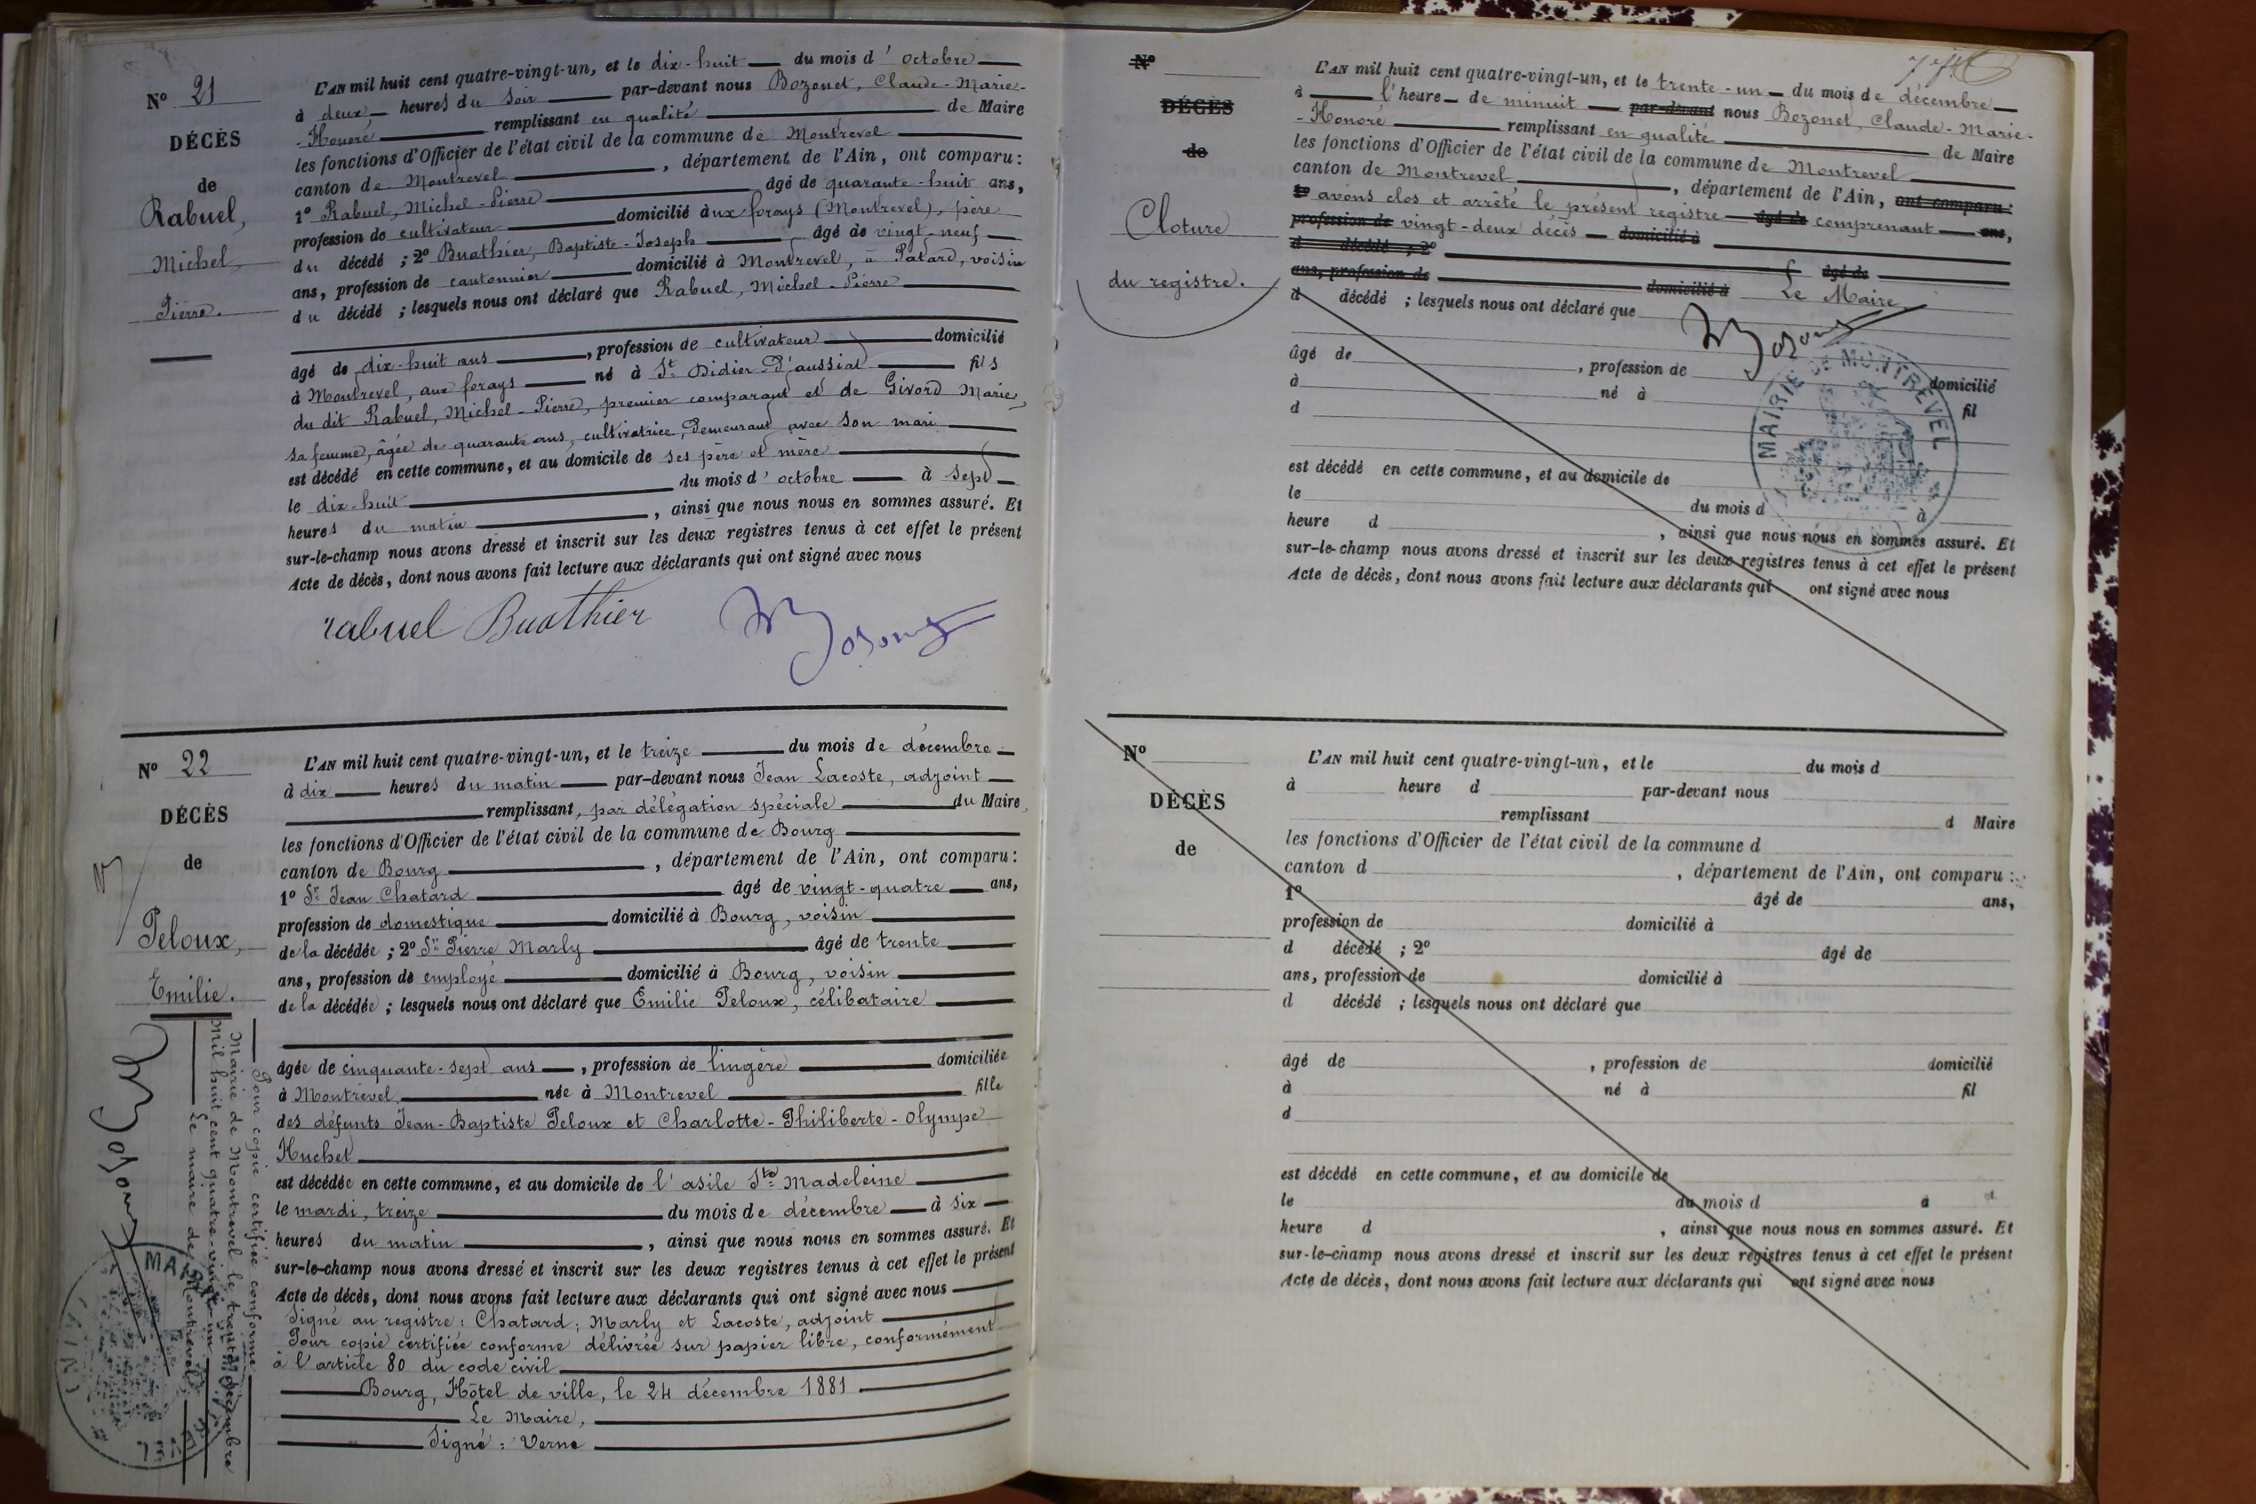 Nº 21
DÉCÈS
de
Rabuel,
Michel
Pierre.
L'AN mil huit cent quatre-vingt-un, et le dix-huit du mois d'octobre
à deux heures du soir par-devant nous Bozonet, Claude-Marie-
-Honoré remplissant en qualité de Maire
les fonctions d'Officier de l'état civil de la commune de Montrevel
canton de Montrevel, département de l'Ain, ont comparu:
1º Rabuel, Michel-Pierre âgé de quarante-huit ans,
profession de cultivateur domicilié aux forays (Montrevel), père
du décédé ; 2º Buathier, Baptiste-Joseph âgé de vingt-neuf
ans, profession de cantonnier domicilié à Montrevel, à Patard, voisin
du décédé ; lesquels nous ont déclaré que Rabuel, Michel-Pierre
âgé de dix-huit ans, profession de cultivateur domicilié
à Montrevel, aux forays né à St Didier-D'aussiat fils
du dit Rabuel, Michel-Pierre, premier comparant et de Givord Marie,
sa femme, âgée de quarante ans, cultivatrice, demeurant avec son mari
est décédé en cette commune, et au domicile de ses père et mère
le dix-huit du mois d'octobre à sept
heures du matin, ainsi que nous nous en sommes assuré. Et
sur-le-champ nous avons dressé et inscrit sur les deux registres tenus à cet effet le présent
Acte de décès, dont nous avons fait lecture aux déclarants qui ont signé avec nous
rabuel Buathier Bozonet
Nº 22
DÉCÈS
de
Peloux,
Emilie.
L'AN mil huit cent quatre-vingt-un, et le treize du mois de décembre
à dix heures du matin par-devant nous Jean Lacoste, adjoint
remplissant, par délégation spéciale du Maire,
les fonctions d'Officier de l'état civil de la commune de Bourg
canton de Bourg, département de l'Ain, ont comparu:
1º Sr Jean Chatard âgé de vingt-quatre ans,
profession de domestique domicilié à Bourg, voisin
de la décédée ; 2º Sr Pierre Marly âgé de trente
ans, profession de employé domicilié à Bourg, voisin
de la décédée ; lesquels nous ont déclaré que Emilie Peloux, célibataire
âgée de cinquante-sept ans, profession de lingère domiciliée
à Montrevel née à Montrevel fille
des défunts Jean-Baptiste Peloux et Charlotte-Philiberte-Olympe
Huchet
est décédée en cette commune, et au domicile de l'asile Ste Madeleine
le mardi, treize du mois de décembre à six
heures du matin, ainsi que nous nous en sommes assuré. Et
sur-le-champ nous avons dressé et inscrit sur les deux registres tenus à cet effet le présent
Acte de décès, dont nous avons fait lecture aux déclarants qui ont signé avec nous
Signé au registre : Chatard ; Marly et Lacoste, adjoint
Pour copie certifiée conforme délivrée sur papier libre, conformément
à l'article 80 du code civil
Bourg, Hôtel de ville, le 24 décembre 1881
Le Maire,
Signé : Verne
Pour copie certifiée conforme
Mairie de Montrevel le trente décembre
mil huit cent quatre-vingt-un
Le maire de Montrevel
Bozonet
Nº
DÉCÈS
de
Cloture
du registre.
L'AN mil huit cent quatre-vingt-un, et le trente-un du mois de décembre
à l'heure de minuit par-devant nous Bozonet, Claude-Marie-
-Honoré remplissant en qualité de Maire
les fonctions d'Officier de l'état civil de la commune de Montrevel
canton de Montrevel, département de l'Ain, ont comparu:
1º avons clos et arrêté le présent registre âgé de comprenant ans,
profession de vingt-deux décès domicilié à
d décédé ; 2º âgé de
ans, profession de domicilié à Le Maire
d décédé ; lesquels nous ont déclaré que
Bozonet
âgé de, profession de domicilié
à né à fil
d
MAIRIE DE MONTREVEL
est décédé en cette commune, et au domicile de
le du mois d à
heure d, ainsi que nous nous en sommes assuré. Et
sur-le-champ nous avons dressé et inscrit sur les deux registres tenus à cet effet le présent
Acte de décès, dont nous avons fait lecture aux déclarants qui ont signé avec nous
Nº
DÉCÈS
de
L'AN mil huit cent quatre-vingt-un, et le du mois d
à heure d par-devant nous
remplissant d Maire
les fonctions d'Officier de l'état civil de la commune d
canton d, département de l'Ain, ont comparu:
1º âgé de ans,
profession de domicilié à
d décédé ; 2º âgé de
ans, profession de domicilié à
d décédé ; lesquels nous ont déclaré que
âgé de, profession de domicilié
à né à fil
d
est décédé en cette commune, et au domicile de
le du mois d à
heure d, ainsi que nous nous en sommes assuré. Et
sur-le-champ nous avons dressé et inscrit sur les deux registres tenus à cet effet le présent
Acte de décès, dont nous avons fait lecture aux déclarants qui ont signé avec nous